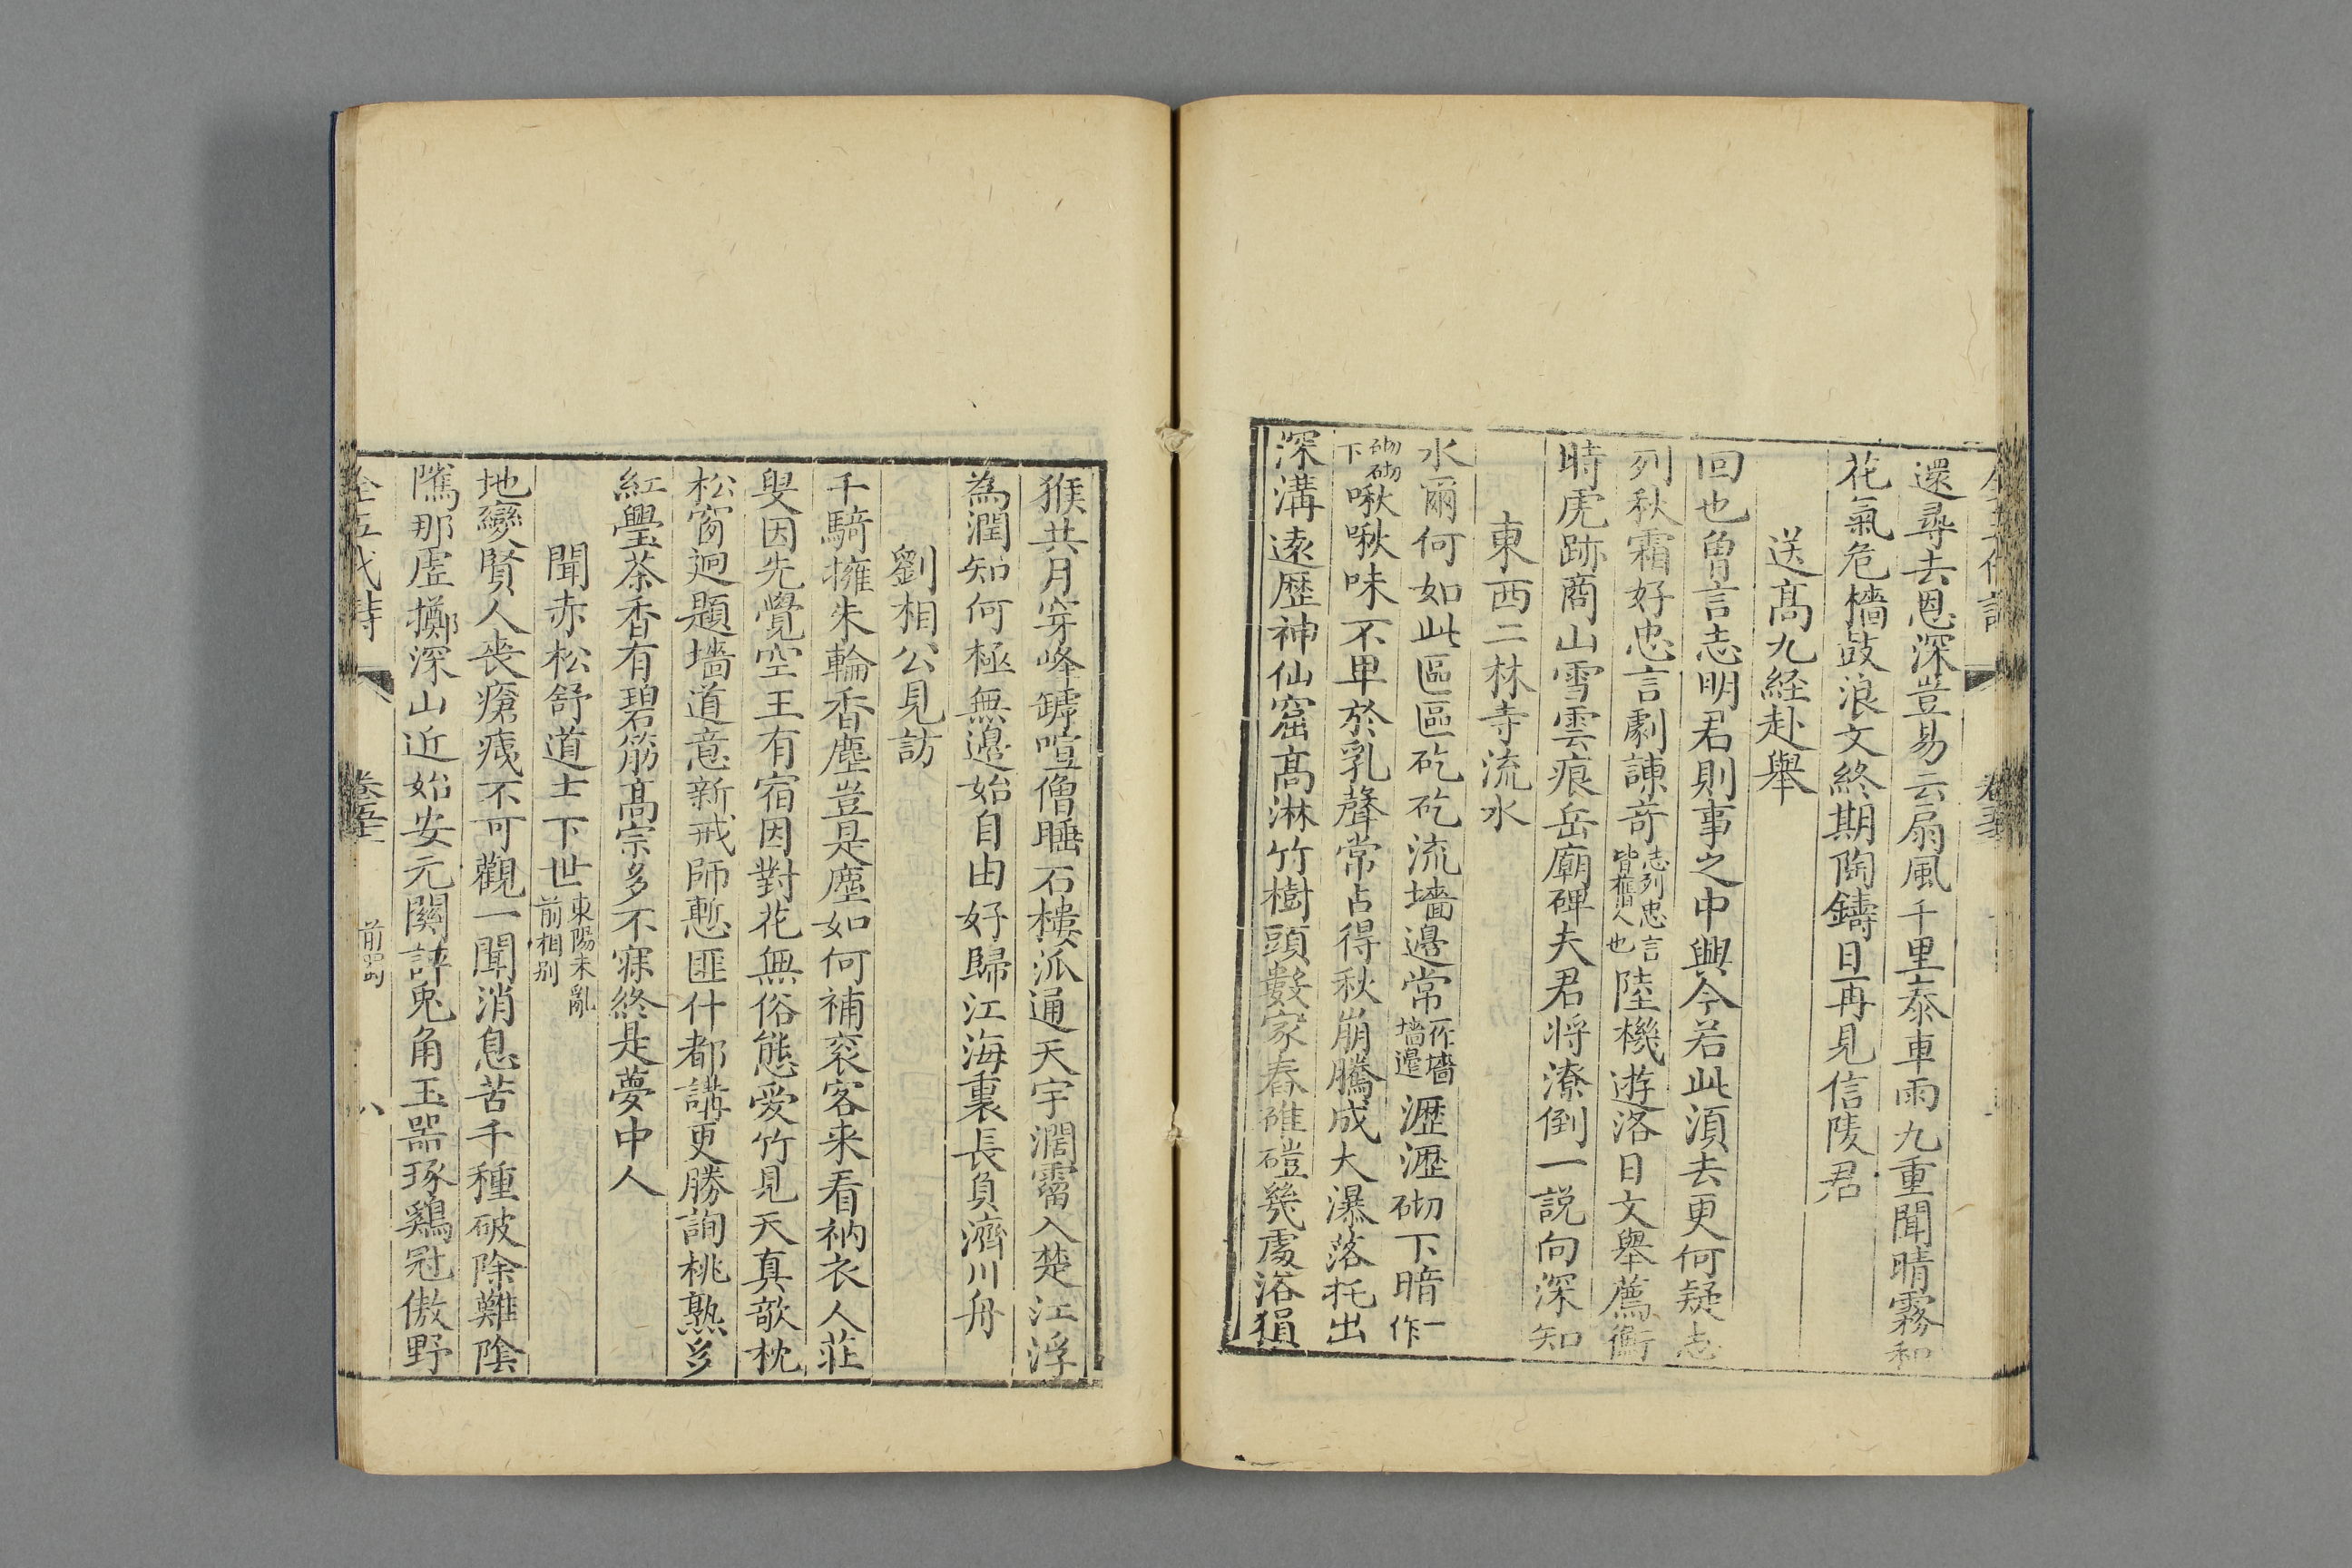 還尋去恩深豈易云扇風千里泰車雨九重聞晴霧和
花氣危檣鼓浪文終期陶鑄日再見信陵君
送髙九経赴舉
回也曾言志明君則事之中興今若此須去更何疑志
列秋霜好忠言劇諫奇志列忠言皆舊人也陸機遊洛日文舉薦衡
時虎跡商山雪雲痕岳廟碑夫君将潦倒一説向深知
東西二林寺流水
水爾何如此區區矻矻流墻邉常一作墻墻邉瀝瀝砌下暗一作
砌砌下啾啾味不卑於乳聲常占得秋崩騰成大瀑落托出
深溝遠歴神仙窟髙淋竹樹頭數家春碓磑幾處浴猿
猴共月穿峰罅喧僧睡石樓派通天宇濶霤入楚江浮
為潤知何極無邉始自由好歸江海裏長負濟川舟
劉相公見訪
千騎擁朱輪香塵豈是塵如何補衮客来看衲衣人莊
叟因先覺空王有宿因對花無俗態愛竹見天真欹枕
松窗迥題墻道意新戒師慙匪什都講更勝詢桃熟多
紅璺茶香有碧筋髙宗多不寐終是夢中人
聞赤松舒道士下世東陽未亂前相别
地變賢人喪瘡痍不可觀一聞消息苦千種破除難陰
隲那虚擲深山近始安元關評兎角玉噐琢鷄冠傲野
全五代詩 八